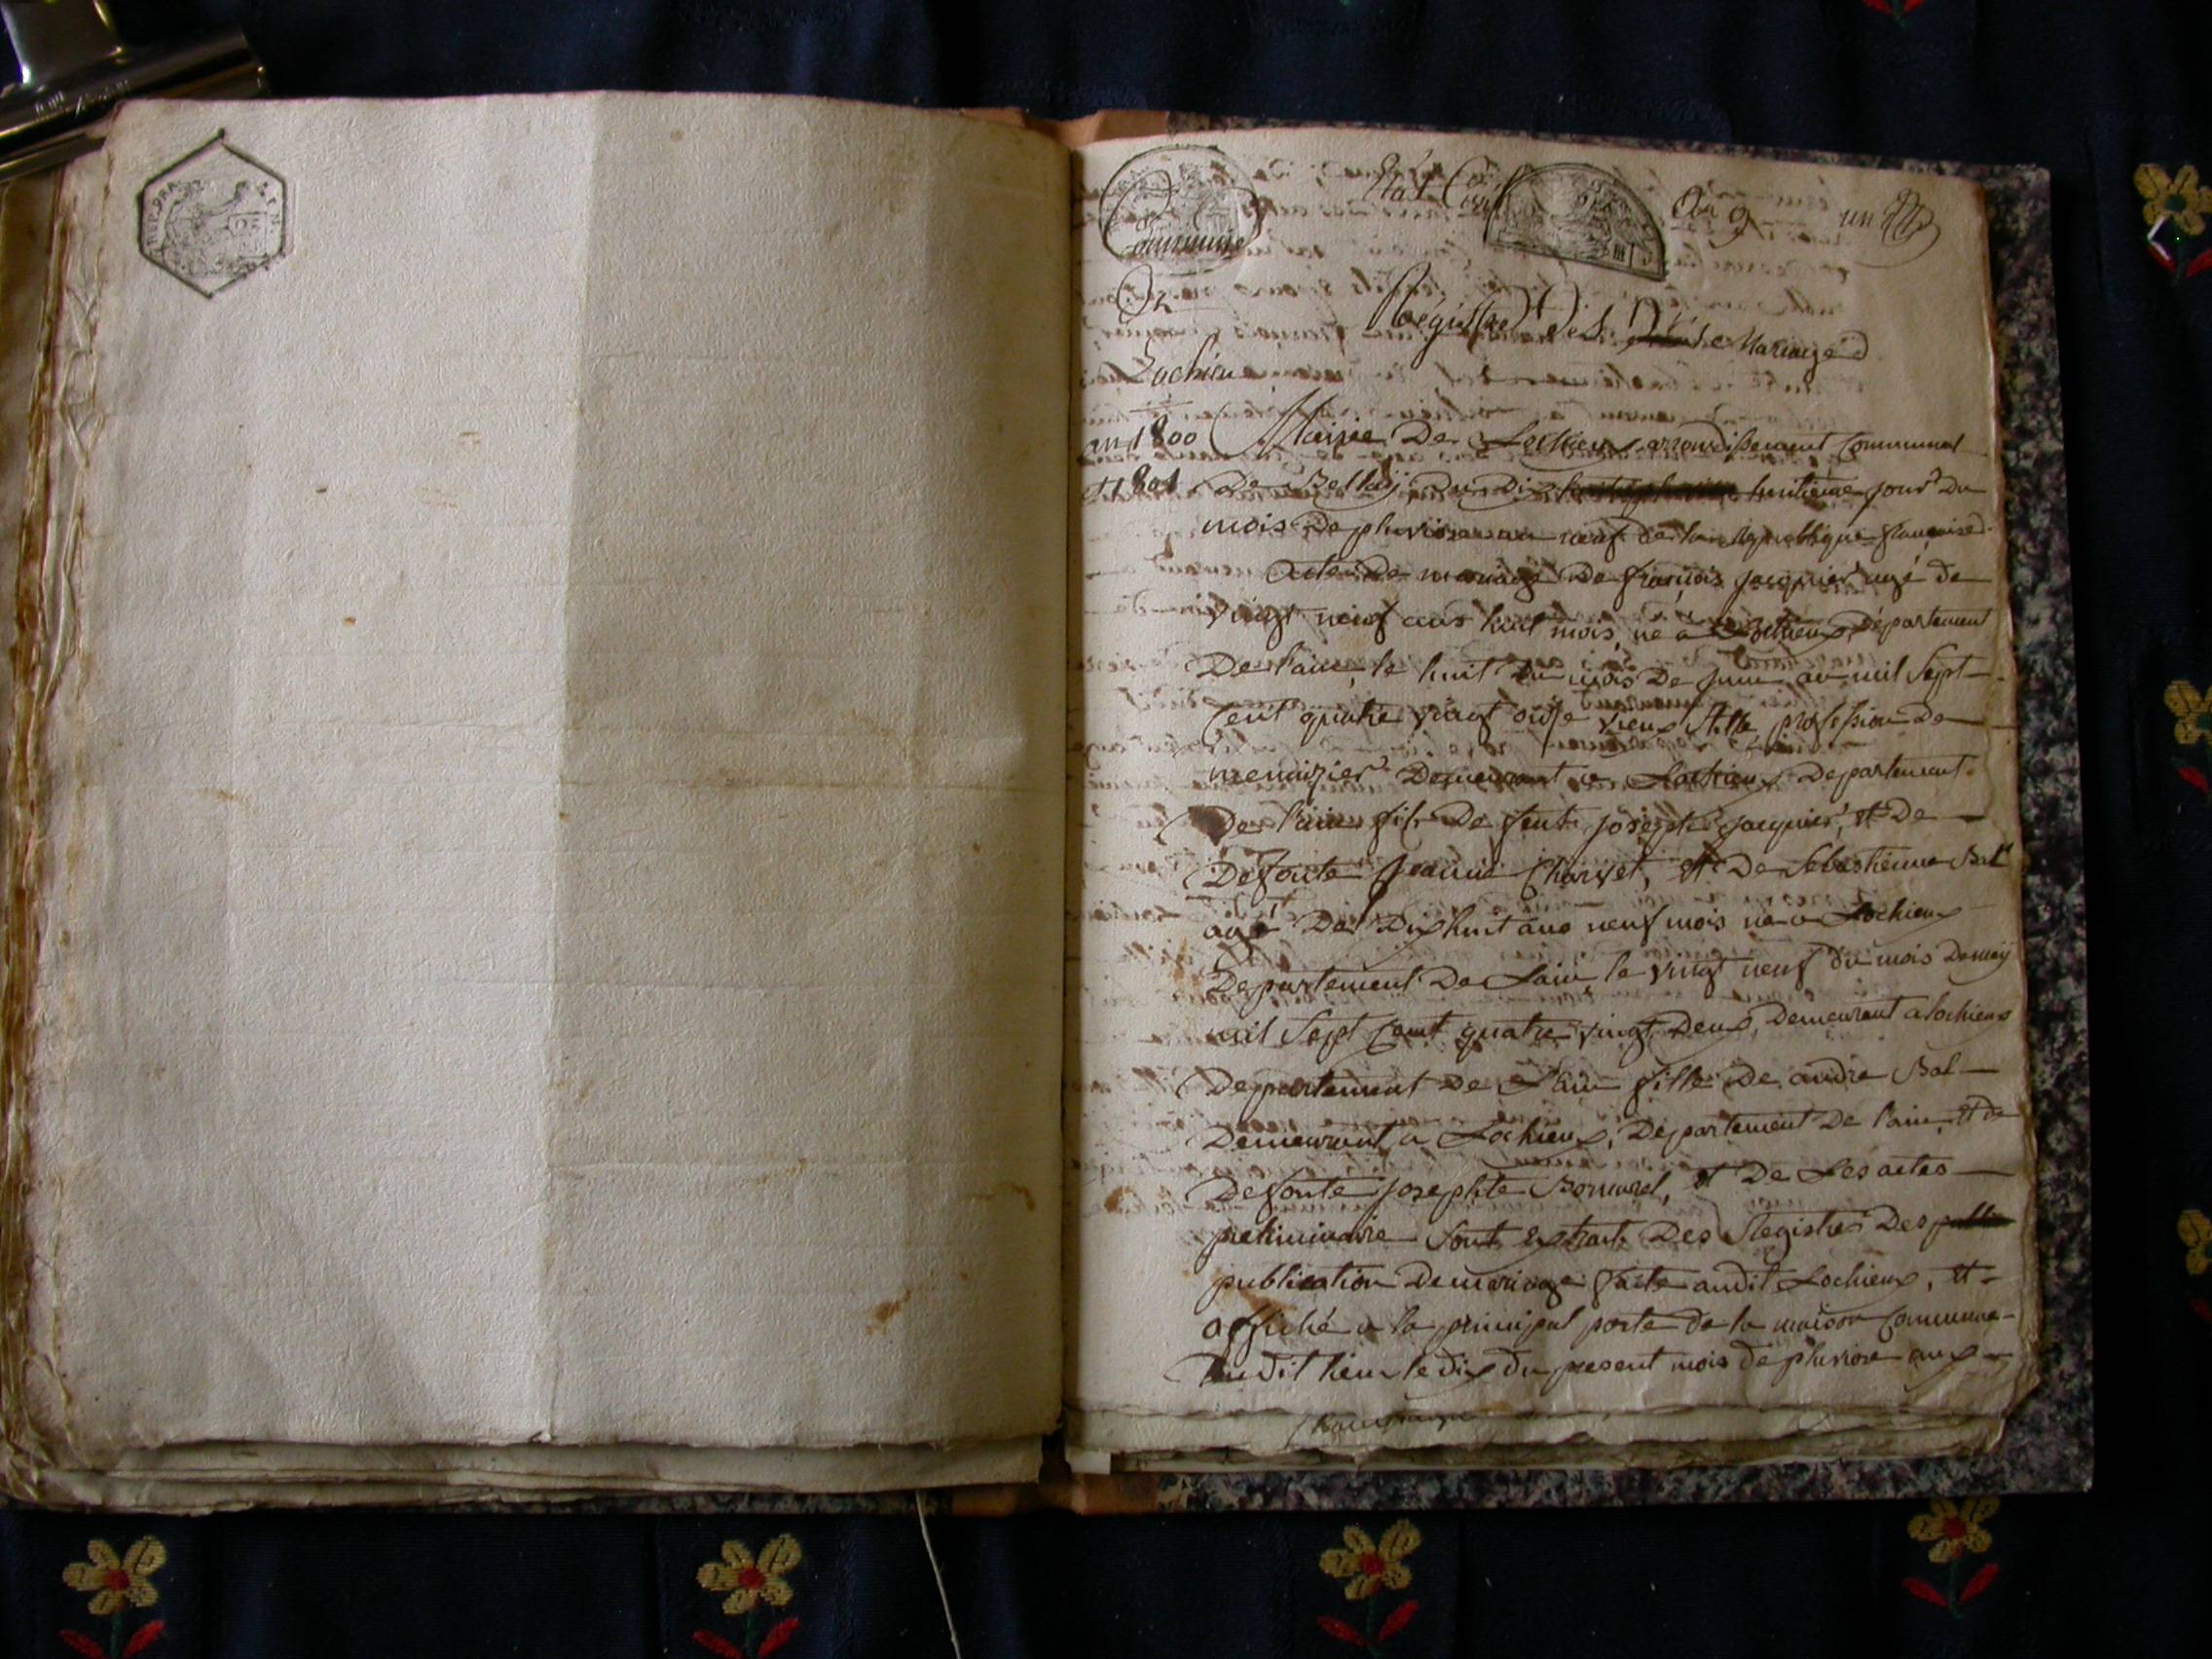 Etat Civil
An 9
un
Commune
De
Lochieu
Régistre Des Mariage
an 1800
et 1801
Mairie De Lochieux arrondissement Communal
De Belley, Du Dix huitieme jour Du
mois De pluviose an neuf de la republique française
Acte De mariage De françois jacquier agé de
vingt neuf ans huit mois, né a Lochieux Département
De l'ain, le huit du mois De juin mil Sept
Cent quatre vingt onse vieux Stille, profession De
menuizier Demeurant a Lochieux Departement
De l'ain fils De feut joseph jacquier, et De
Defonte jeanne Charvet, et De Sebastienne Bal
agé De Dixhuit ans neuf mois né a Lochieux
Departement De Lain, le vingt neuf du mois Demay
mil Sept Cent quatre vingt Deux, Demeurant a lochieux
Departement De L'ain fille De andré Bal
Demeurant a Lochieux, Département De l'ain, et de
Defonte josephte Bonnard, et De Les actes
preliminaire Sont Extrait Des Registres Des
publication De mariage faite audit Lochieux, et
affiché a la principal porte de la maison Commune
Dudit lieu le dix du present mois de pluviose